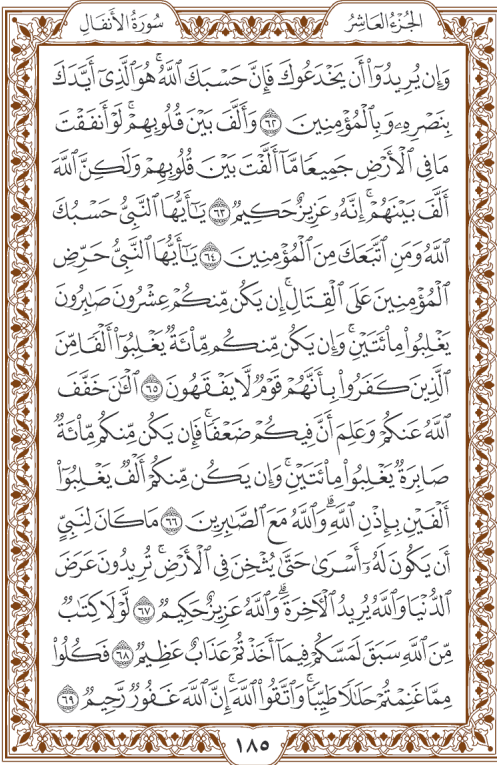 الجُزْءُ العَاشِرُ
سُورَةُ الأَنفَالِ
وَإِن يُرِيدُوٓاْ أَن يَخْدَعُوكَ فَإِنَّ حَسْبَكَ ٱللَّهُۚ هُوَ ٱلَّذِىٓ أَيَّدَكَ
بِنَصْرِهِۦ وَبِٱلْمُؤْمِنِينَ ٦٢ وَأَلَّفَ بَيْنَ قُلُوبِهِمْۚ لَوْ أَنفَقْتَ
مَا فِى ٱلْأَرْضِ جَمِيعًا مَّآ أَلَّفْتَ بَيْنَ قُلُوبِهِمْ وَلَٰكِنَّ ٱللَّهَ
أَلَّفَ بَيْنَهُمْۚ إِنَّهُۥ عَزِيزٌ حَكِيمٌ ٦٣ يَٰٓأَيُّهَا ٱلنَّبِىُّ حَسْبُكَ
ٱللَّهُ وَمَنِ ٱتَّبَعَكَ مِنَ ٱلْمُؤْمِنِينَ ٦٤ يَٰٓأَيُّهَا ٱلنَّبِىُّ حَرِّضِ
ٱلْمُؤْمِنِينَ عَلَى ٱلْقِتَالِۚ إِن يَكُن مِّنكُمْ عِشْرُونَ صَٰبِرُونَ
يَغْلِبُواْ مِاْئَتَيْنِۚ وَإِن يَكُن مِّنكُم مِّاْئَةٌ يَغْلِبُوٓاْ أَلْفًا مِّنَ
ٱلَّذِينَ كَفَرُواْ بِأَنَّهُمْ قَوْمٌ لَّا يَفْقَهُونَ ٦٥ ٱلْـَٰٔنَ خَفَّفَ
ٱللَّهُ عَنكُمْ وَعَلِمَ أَنَّ فِيكُمْ ضَعْفًاۚ فَإِن يَكُن مِّنكُم مِّاْئَةٌ
صَابِرَةٌ يَغْلِبُواْ مِاْئَتَيْنِۚ وَإِن يَكُن مِّنكُمْ أَلْفٌ يَغْلِبُوٓاْ
أَلْفَيْنِ بِإِذْنِ ٱللَّهِۗ وَٱللَّهُ مَعَ ٱلصَّٰبِرِينَ ٦٦ مَا كَانَ لِنَبِىٍّ
أَن يَكُونَ لَهُۥٓ أَسْرَىٰ حَتَّىٰ يُثْخِنَ فِى ٱلْأَرْضِۚ تُرِيدُونَ عَرَضَ
ٱلدُّنْيَا وَٱللَّهُ يُرِيدُ ٱلْـَٔاخِرَةَۗ وَٱللَّهُ عَزِيزٌ حَكِيمٌ ٦٧ لَّوْلَا كِتَٰبٌ
مِّنَ ٱللَّهِ سَبَقَ لَمَسَّكُمْ فِيمَآ أَخَذْتُمْ عَذَابٌ عَظِيمٌ ٦٨ فَكُلُواْ
مِمَّا غَنِمْتُمْ حَلَٰلًا طَيِّبًاۚ وَٱتَّقُواْ ٱللَّهَۚ إِنَّ ٱللَّهَ غَفُورٌ رَّحِيمٌ ٦٩
١٨٥